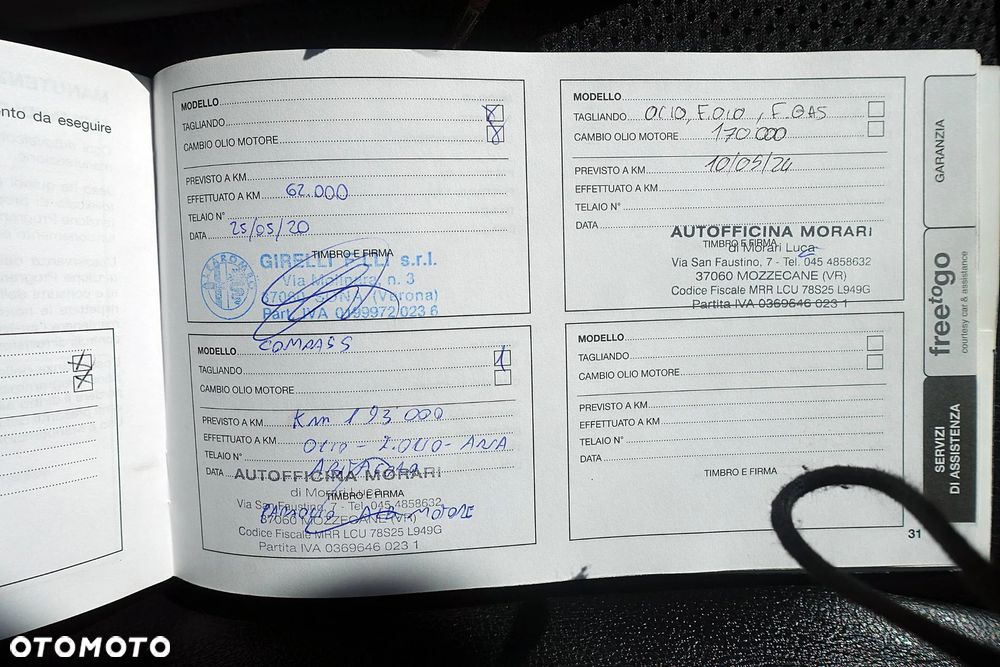 MANUTENZ
nto da eseguire
MODELLO
TAGLIANDO
CAMBIO OLIO MOTORE
PREVISTO A KM
EFFETTUATO A KM 62.000
TELAIO N°
DATA 25/05/20
TIMBRO E FIRMA
GIRELLI F.LLI s.r.l.
Via Molinara, n. 3
37060 SONA (Verona)
Part. IVA 0199972 023 6
MODELLO COMPASS
TAGLIANDO
CAMBIO OLIO MOTORE
PREVISTO A KM Km 193 000
EFFETTUATO A KM OLIO - F.OLIO - ARIA
TELAIO N° ABITACOLO
DATA
AUTOFFICINA MORARI
di Morari Luca
TIMBRO E FIRMA
Via San Faustino, 7 - Tel. 045 4858632
37060 MOZZECANE (VR)
MOTORE
Codice Fiscale MRR LCU 78S25 L949G
Partita IVA 0369646 023 1
MODELLO
TAGLIANDO OLIO, F.OLIO, F.GAS
CAMBIO OLIO MOTORE 170.000
PREVISTO A KM 10/05/24
EFFETTUATO A KM
TELAIO N°
DATA
AUTOFFICINA MORARI
TIMBRO E FIRMA
di Morari Luca
Via San Faustino, 7 - Tel. 045 4858632
37060 MOZZECANE (VR)
Codice Fiscale MRR LCU 78S25 L949G
Partita IVA 0369646 023 1
MODELLO
TAGLIANDO
CAMBIO OLIO MOTORE
PREVISTO A KM
EFFETTUATO A KM
TELAIO N°
DATA
TIMBRO E FIRMA
GARANZIA
freetogo
courtesy car & assistance
SERVIZI
DI ASSISTENZA
31
OTOMOTO